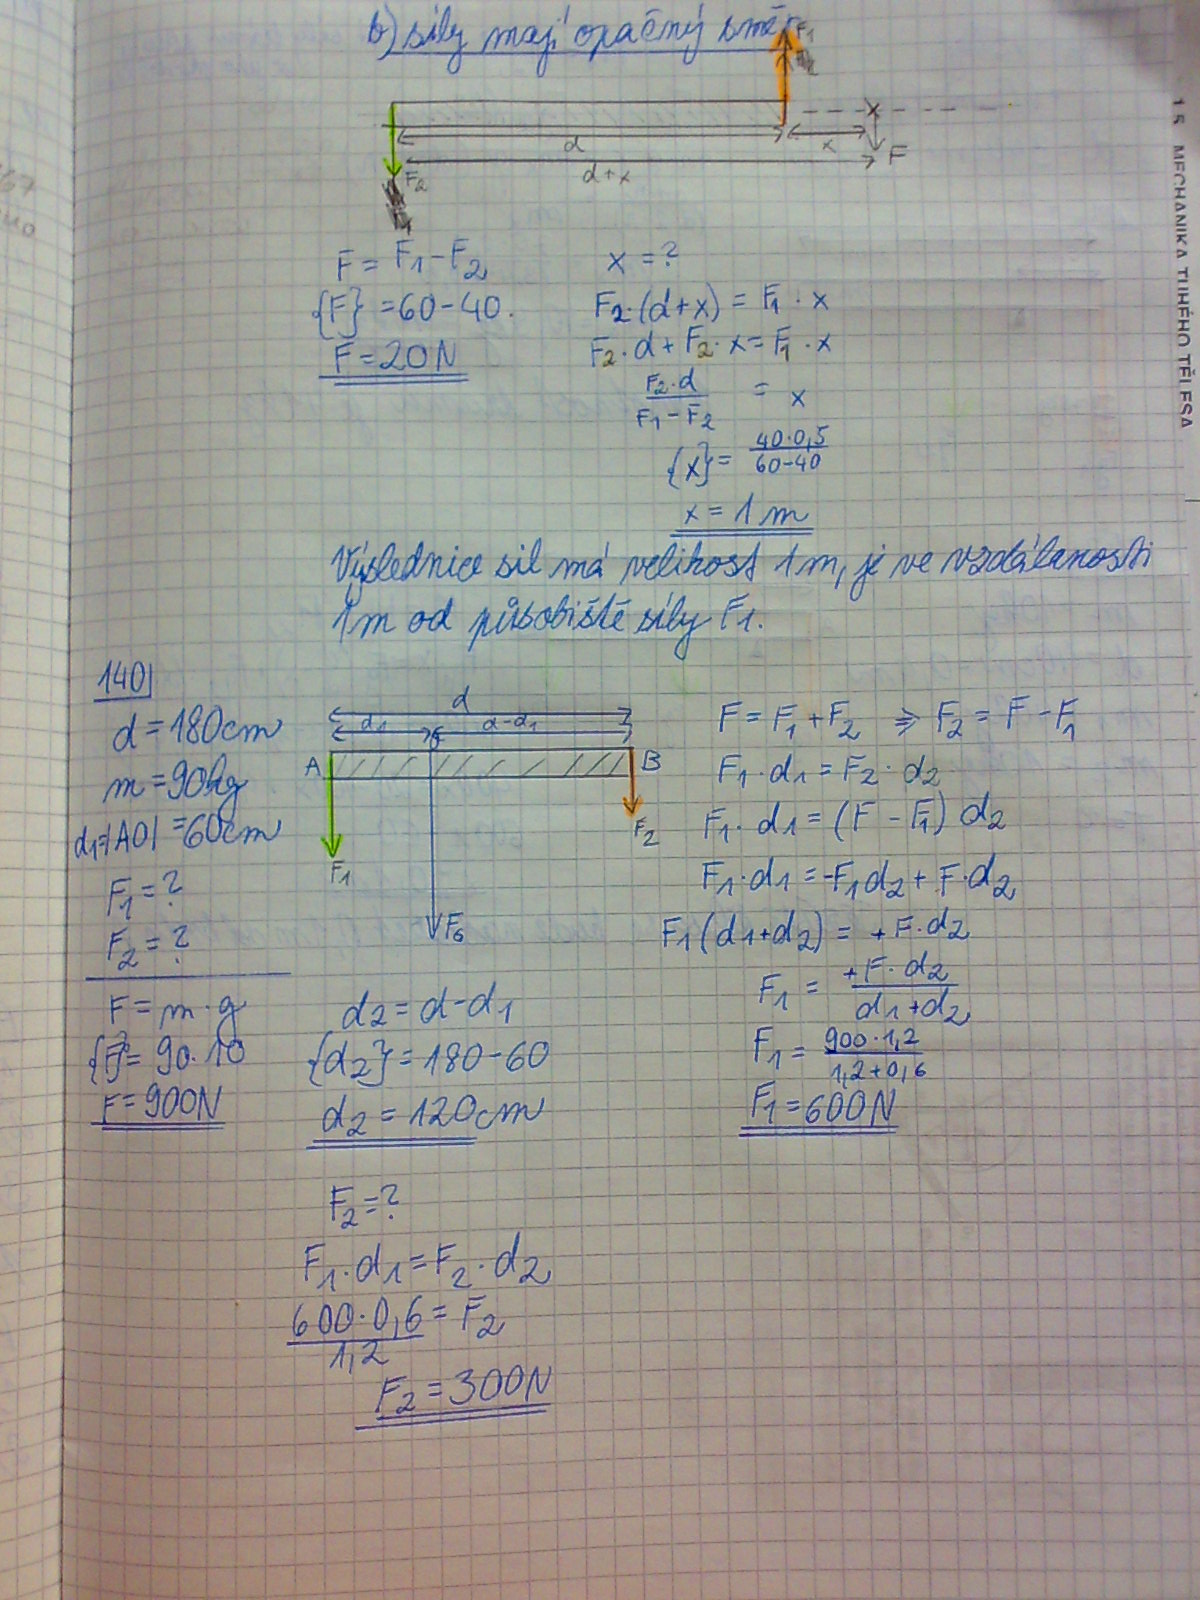 b) síly mají opačný směr
F1
F2
d
x
F
d+x
F = F1 - F2
{F} = 60 - 40.
F = 20 N
x = ?
F2·(d+x) = F1 · x
F2 · d + F2 · x = F1 · x
F2·d / F1 - F2 = x
{x} = 40·0,5 / 60-40
x = 1 m
Výslednice sil má velikost 1m, je ve vzdálenosti
1m od působiště síly F1.
140)
d = 180cm
m = 90kg
d1=|AO| = 60cm
F1 = ?
F2 = ?
F = m · g
{F} = 90·10
F = 900N
d
d1
d-d1
A
B
F1
F2
FG
d2 = d - d1
{d2} = 180 - 60
d2 = 120cm
F = F1 + F2 ⇒ F2 = F - F1
F1 · d1 = F2 · d2
F1 · d1 = (F - F1) d2
F1 · d1 = -F1d2 + F·d2
F1 (d1+d2) = +F·d2
F1 = +F·d2 / d1+d2
F1 = 900·1,2 / 1,2+0,6
F1 = 600N
F2 = ?
F1·d1 = F2·d2
600·0,6 / 1,2 = F2
F2 = 300N
1.5 MECHANIKA TUHÉHO TĚLESA